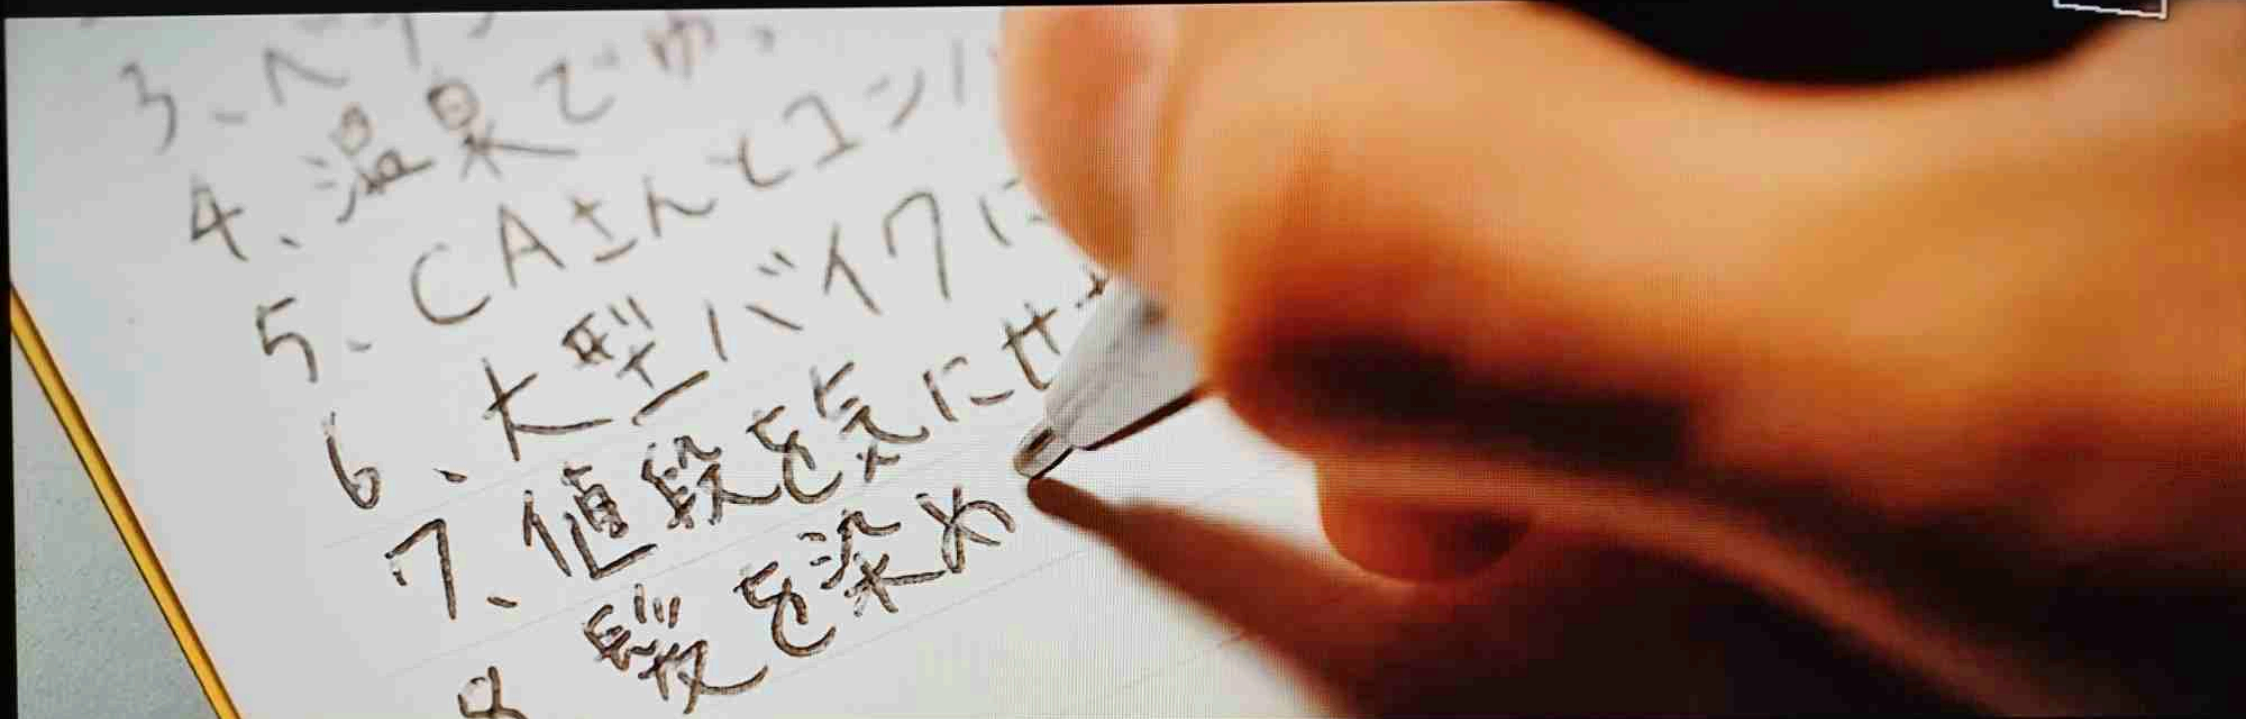 3、ベ
4、温泉でゆ
5、CAさんとコンパ
6、大型バイクに
7、値段を気にせ
8 髪を染め